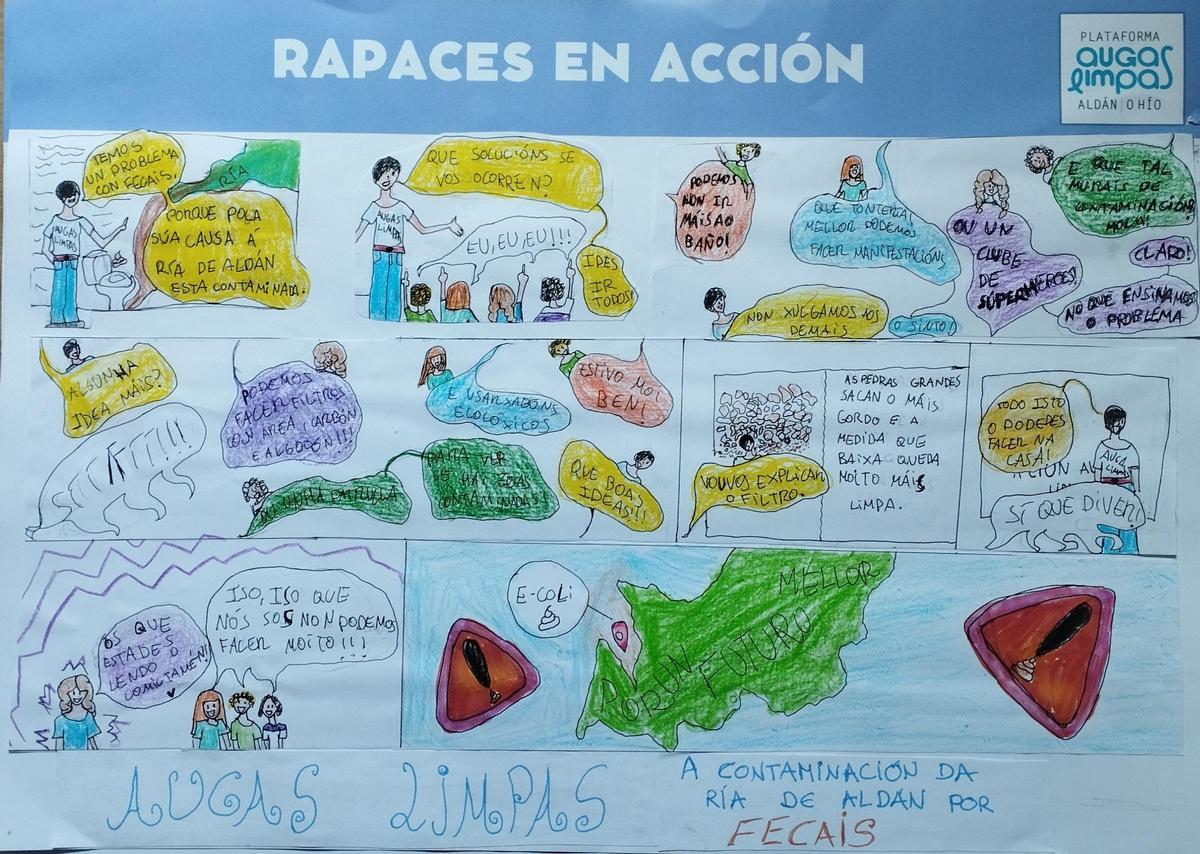 RAPACES EN ACCIÓN
PLATAFORMA
augas
limpas
ALDÁN | O HÍO
TEMOS
UN PROBLEMA
CON FECAIS.
RÍA
PORQUE POLA
SÚA CAUSA Á
RÍA DE ALDÁN
ESTA CONTAMINADA.
AUGAS
LIMPAS
QUE SOLUCIÓNS SE
VOS OCORREN?
AUGAS
LIMPAS
EU, EU, EU!!!
IDES
IR
TODOS!
PODEMOS
NON IR
MAIS AO
BAÑO!
QUE TONTERIA!
MELLOR PODEMOS
FACER MANIFESTACIÓNS
NON XULGAMOS AOS
DEMAIS
O SINTO!
OU UN
CLUBE
DE
SUPERHEROES!
E QUE TAL
MURAIL DE
CONTAMINACIÓN
MOLA!
CLARO!
NO QUE ENSINAMOS
O PROBLEMA
ALGUNHA
IDEA MÁIS?
PODEMOS
FACER FILTROS
CON AREA, CARBÓN
E ALGODÓN!!!
E USAR XABÓNS
ECOLÓXICOS
ESTIVO MOI
BEN!
PATRULLA
PARA VER
SE HAI ZOAS
CONTAMINADAS!
QUE BOAS
IDEAS!!!
VOUVOS EXPLICAR
O FILTRO.
AS PEDRAS GRANDES
SACAN O MÁIS
GORDO E A
MEDIDA QUE
BAIXA QUEDA
MOITO MÁIS
LIMPA.
TODO ISTO
O PODEDES
FACER NA
CASA!
SÍ QUE DIVER!
OS QUE
ESTADES
LENDO O
COMIC TAMÉN!
ISO, ISO QUE
NÓS SOS NON PODEMOS
FACER MOITO!!!
E-COLI
POR UN
FUTURO
MELLOR
AUGAS LIMPAS
A CONTAMINACIÓN DA
RÍA DE ALDÁN POR
FECAIS